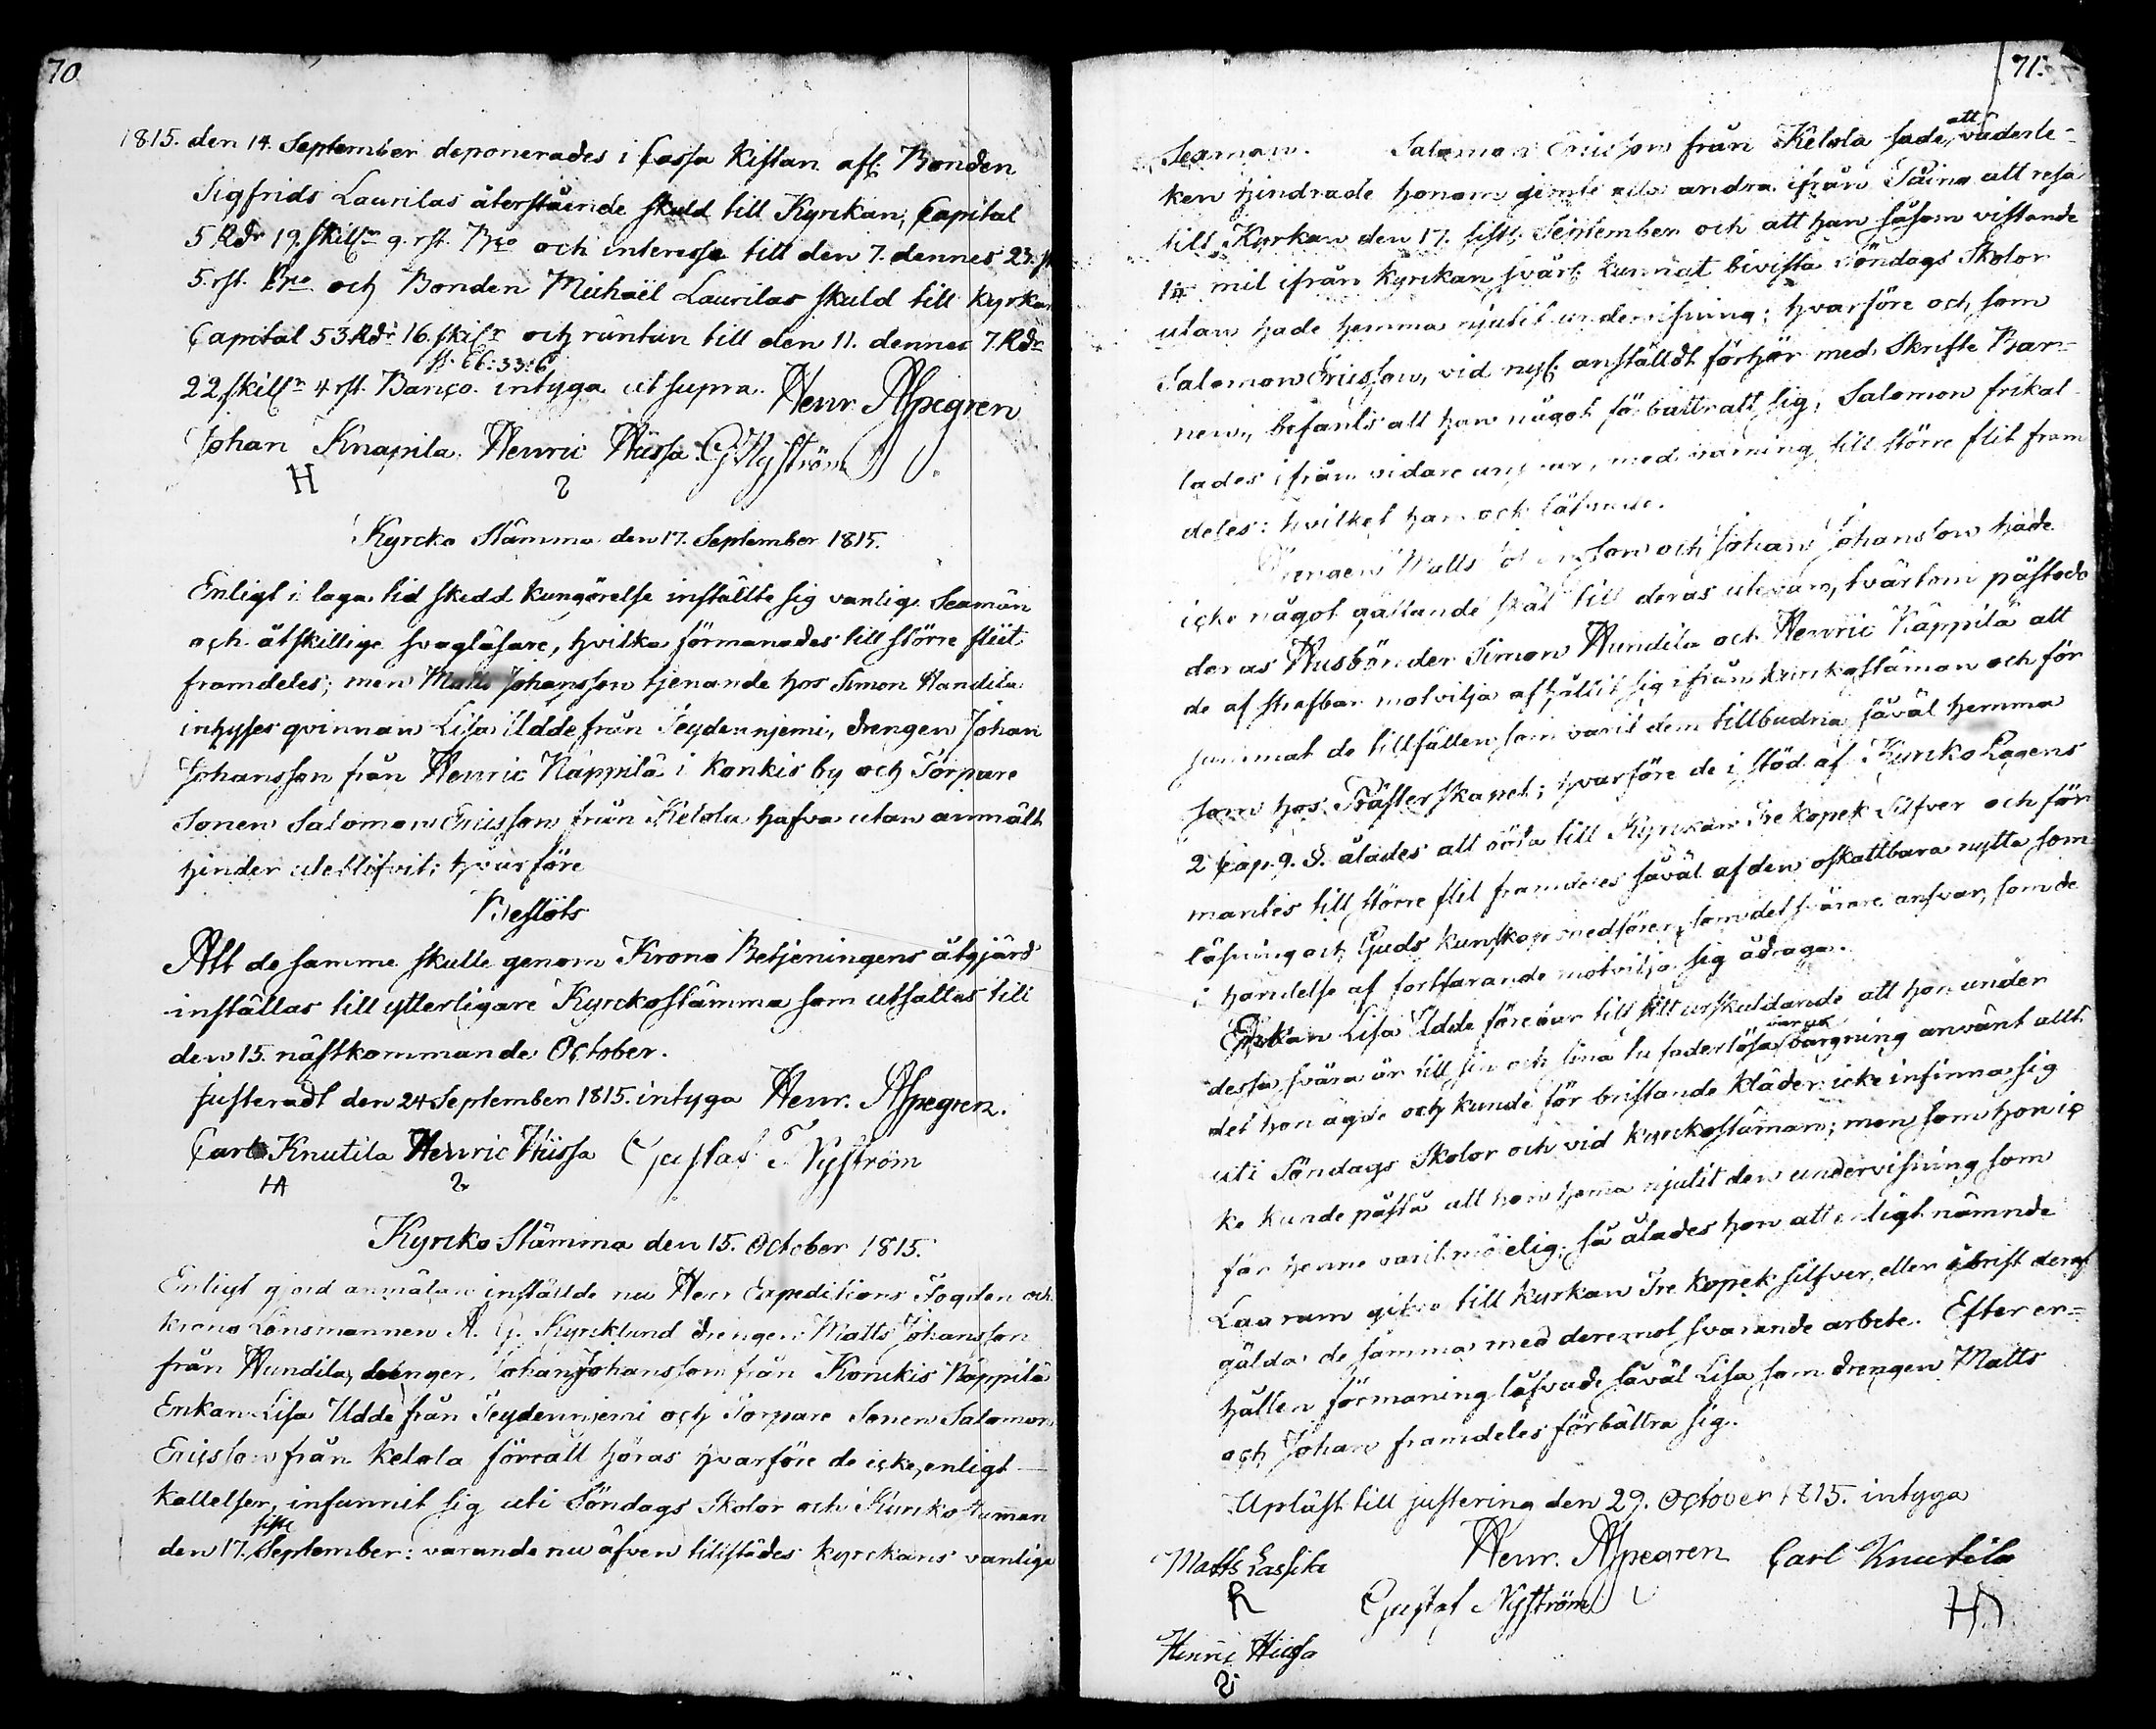 70
1815. den 14. September deponerades i Cassa Kistan afl. Bonden
Sigfrids Laurilas återstående skuld till Kyrkan, Capital
5 Rdr 19. skillr 9. rst. Bco och interesse till den 7. dennes 23. sk
5. rst. Bco och Bonden Michaël Laurilas skuld till Kyrkan
Capital 53 Rdr 16. skillr och räntan till den 11. dennes 7 Rdr
66:33:6
22 skillr 4 rst. Banco. intyga ut supra. Henr. Alpegren
Johan Knapila. Henric Hiissa. G Nyström
H 2
Kyrcko Stämma den 17. September 1815.
Enligt i laga tid skedd kungörelse inställte sig vanlige Sexmän
och åtskillige svagläsare, hvilka förmanades till större fliit
framdeles; men Matts Johansson tjenande hos Simon Handila
inhyses qvinnan Lisa Udde från Teydennjemi, drengen Johan
Johansson från Henric Näppilä i Konkis by och Torpare
Sonen Salomon Ericsson från Kelola hafva utan anmält
hinder uteblifvit; hvarföre
Beslöts
Att de samme skulle genom Krono Betjeningens åtgjärd
inställas till ytterligare Kyrckostämma som utsattes till
den 15. nästkommande October.
Justeradt den 24 September 1815. intyga Henr. Alpegren.
Carl Knutila Henric Hiissa Gustaf Nyström
HA 2
Kyrko Stämma den 15. October 1815.
Enligt gjord anmälan inställde nu Herr Expeditions Fogden och
Krono Länsmannen A. G. Kyrklund drengen Matts Johansson
från Hundila, drengen Johan Johansson från Konkis Näppilä
Enkan Lisa Udde från Teydennjemi och Torpare Sonen Salomon
Ericsson från Kelola för att höras hvarföre de icke, enligt
kallelser, infunnit sig uti Söndags Skolor och Kyrkostämman
sistl
den 17. September: varande nu äfven tillstädes kyrckans vanlige
71.
Sexman. Salomon Ericsson från Kelola sade, att väderle-
ken hindrade honom gemte alla andra ifrån Påina att resa
till Kyrkan den 17. sistl. September och att han såsom vistande
1¼ mil ifrån Kyrkan svårl. kunnat bivista Söndags Skolor
utan hade hemma njutit undervisning; hvarföre och som
Salomon Ericsson, vid nyl. anställdt förhör med Skrifte Bar-
nen, befants att han något förbättratt sig, Salomon frikal
lades ifrån vidare ansvar, med varning till större flit fram
deles: hvilket han ock låfvade.
Drengen Matts Johansson och Johan Johansson hade
icke något gällande skäl till deras utevaro, tvärtom påstodo
deras Husbönder Simon Hundila och Henric Näppilä att
de af straffbar motvilja afhållit sig ifrån kyrkostäman och för
summat de tillfällen som varit dem tillbudna såväl hemma
som hos Prästerskapet; hvarföre de i stöd af Kyrko Lagens
2 Cap. 9. §. ålades att böta till Kyrkan Tre kopek Silfver och för
mantes till större flit framdeles såväl af den oskattbara nytta som
läsning och Guds kunskap medförer, som det svårare ansvar, som de
i händelse af fortfarande motvilja sig ådraga.
Enkan Lisa Udde förebar till sitt urskuldande att hon under
dessa svåra år till sin och sina tu faderlösa barns bärgning använt allt
det hon ägde och kunde för bristande kläder icke infinna sig
uti Söndags Skolor och vid Kyrckostäman; men som hon ic
ke kunde påstå att hon hema njutit den undervisning som
för henne varit möjelig, så ålades hon att enligt nämnde
Laarum gifva till Kyrkan Tre kopek silfver, eller i brist deraf
gälda de samma med deremot svarande arbete. Efter er-
hållen förmaning låfvade såväl Lisa som drengen Matts
och Johan framdeles förbättra sig.
Upläst till justering den 29. October 1815. intyga
Matts Lassila Henr. Alpegren Carl Knutila
R Gustaf Nyström HA
Henric Hiissa
2